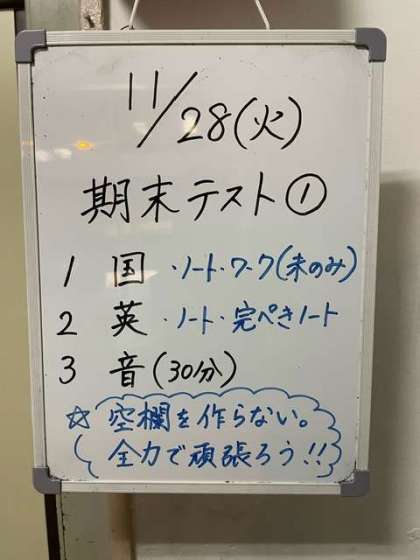 11/28(火)
期末テスト①
1 国 ・ノート・ワーク(未のみ)
2 英 ・ノート・完ぺきノート
3 音(30分)
☆ 空欄を作らない。
全力で頑張ろう!!